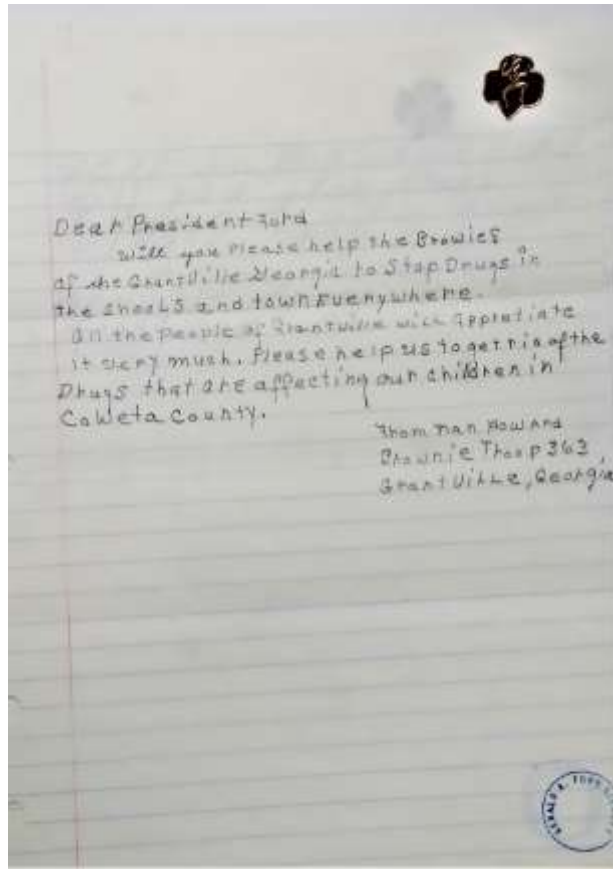 Dear President Ford
will you Please help the Browies
of the Grantville Georgia to Stop Drugs in
the shools and town Everywhere.
all the People of Grantville will Appretiate
it very mush. Please help us to get rid of the
Drugs that are affecting our children in
Coweta County.
From Nan Howard
Brownie Troop 363
Grantville, Georgia
GERALD R. FORD